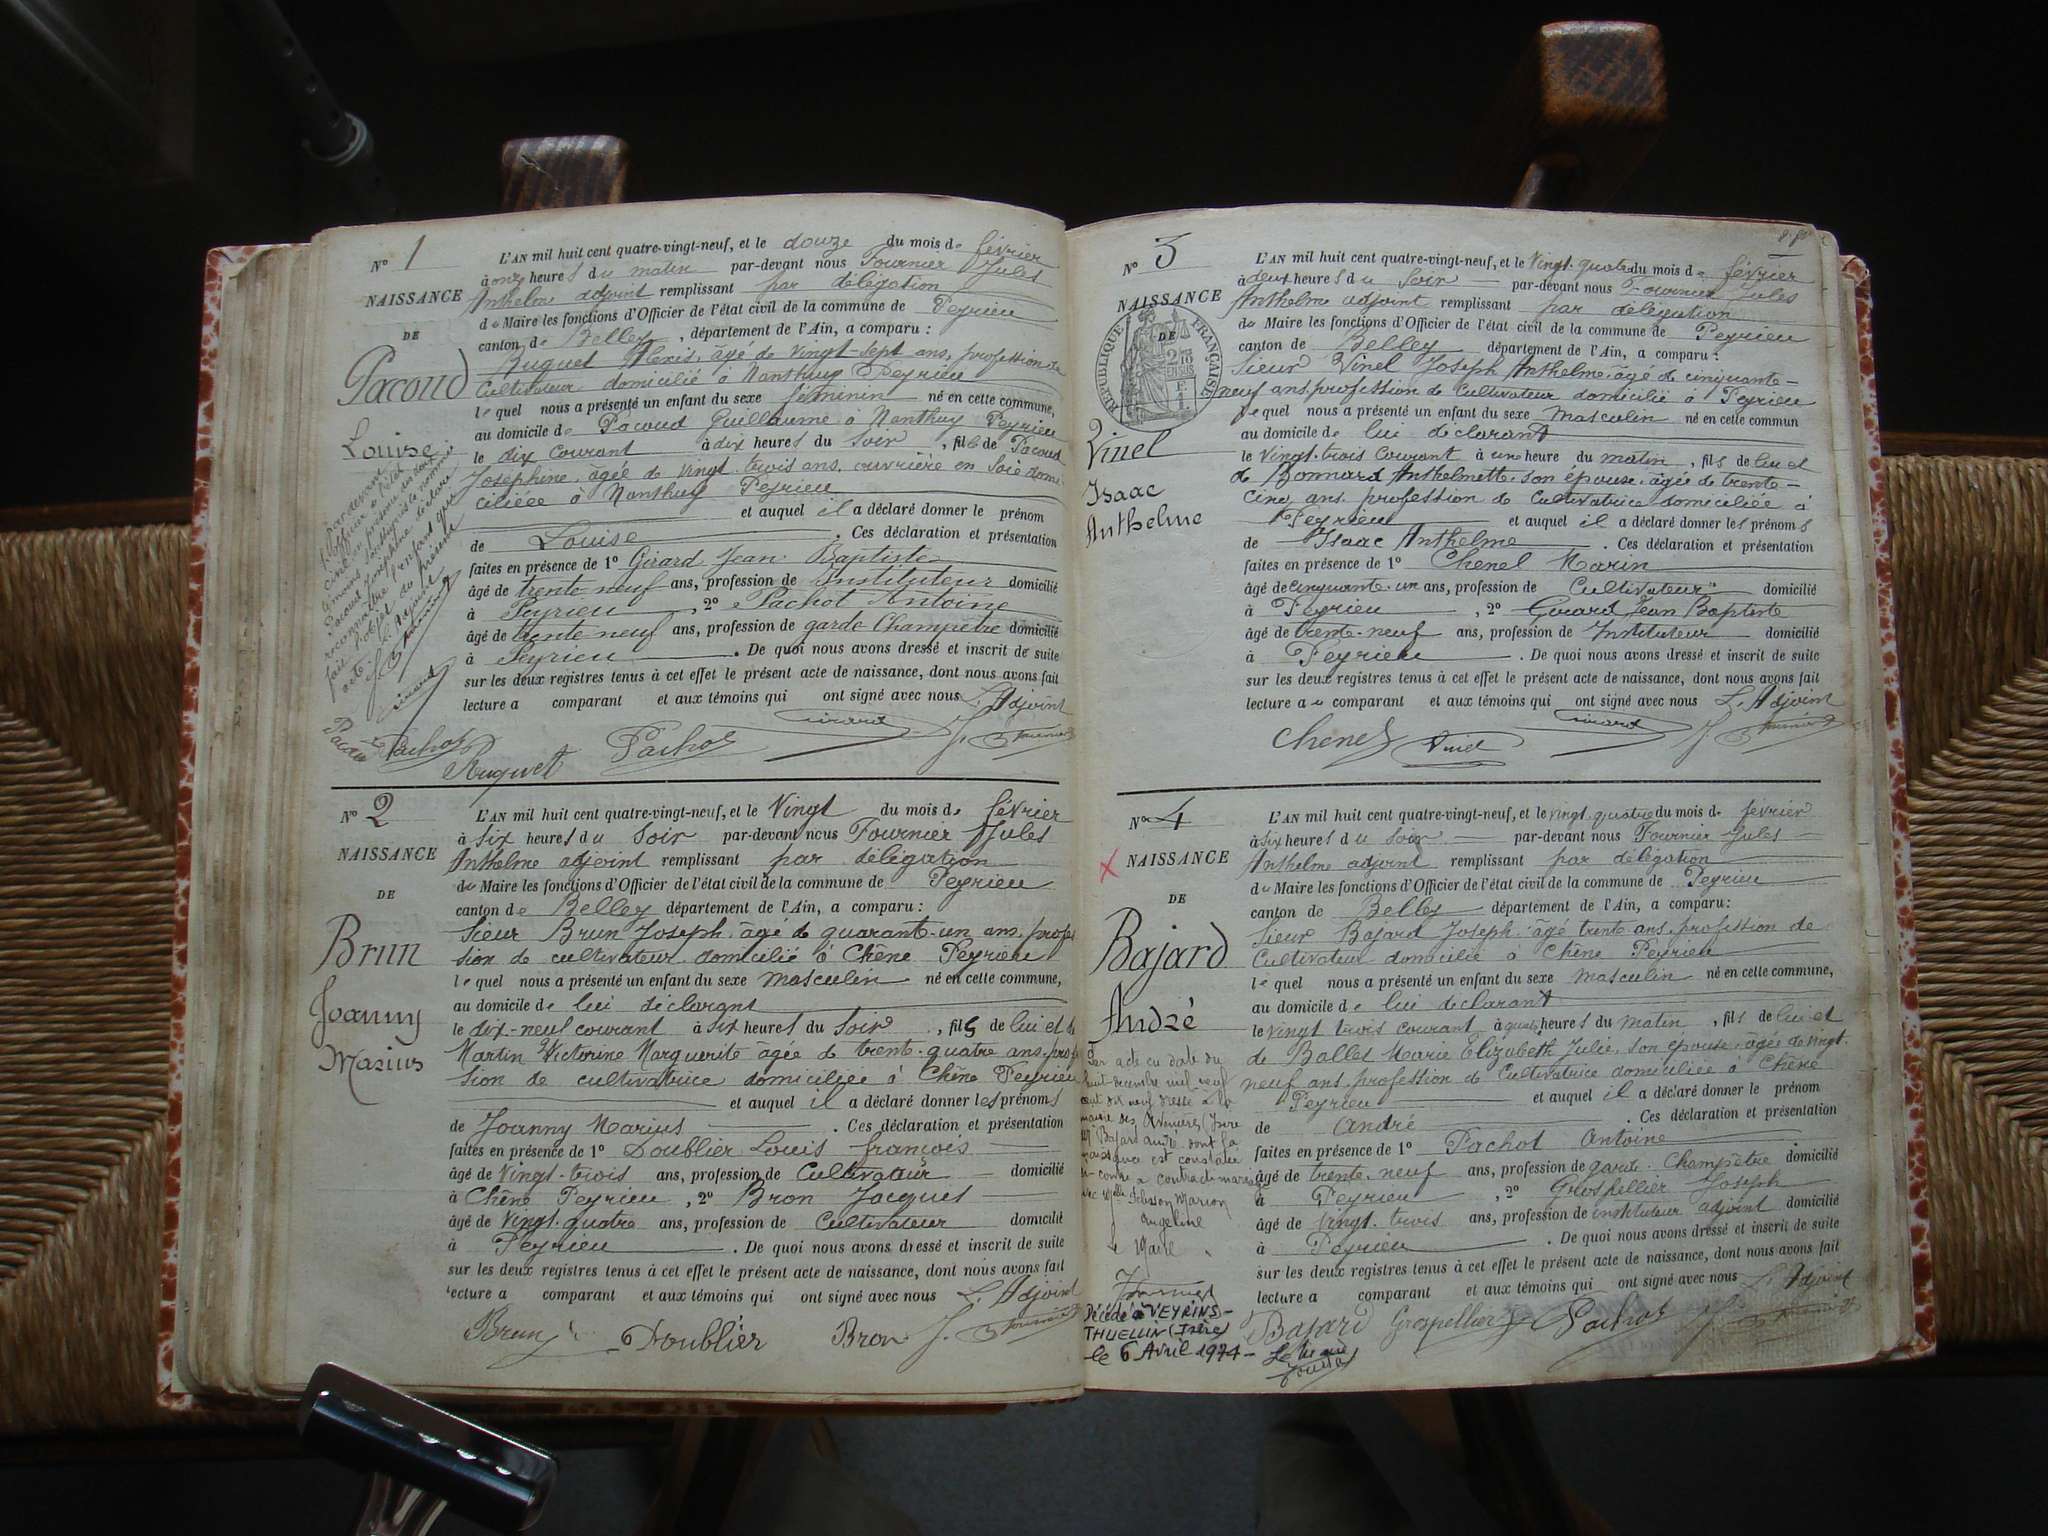 N° 1
NAISSANCE
DE
Pacoud
Louise
L'AN mil huit cent quatre-vingt-neuf, et le douze du mois de février
à onze heures du matin par-devant nous Fournier Jules
Anthelme adjoint remplissant par délégation
du Maire les fonctions d'Officier de l'état civil de la commune de Peyrieu
canton de Belley, département de l'Ain, a comparu :
Ruguet Alexis, âgé de vingt-sept ans, profession de
Cultivateur domicilié à Nanthuy Peyrieu
lequel nous a présenté un enfant du sexe féminin né en cette commune,
au domicile de Pacoud Guillaume à Nanthuy Peyrieu
le dix courant à dix heures du soir, fille de Pacoud
Joséphine, âgée de vingt-trois ans, ouvrière en soie domi-
ciliée à Nanthuy Peyrieu
et auquel il a déclaré donner le prénom
de Louise. Ces déclaration et présentation
faites en présence de 1° Girard Jean Baptiste
âgé de trente neuf ans, profession de Instituteur domicilié
à Peyrieu, 2° Pachot Antoine
âgé de trente neuf ans, profession de garde Champêtre domicilié
à Peyrieu. De quoi nous avons dressé et inscrit de suite
sur les deux registres tenus à cet effet le présent acte de naissance, dont nous avons fait
lecture a comparant et aux témoins qui ont signé avec nous L'Adjoint
Par devant
l'officier de l'état
civil en présence des deux
témoins soussignés la nommée
Pacoud Joséphine déclare
reconnaître l'enfant qui
fait l'objet du présent
acte. L'Adjoint
J. Fournier
Girard
Pacoud Pachot
Ruguet Pachot Girard J. Fournier
N° 2
NAISSANCE
DE
Brun
Joanny
Marius
L'AN mil huit cent quatre-vingt-neuf, et le Vingt du mois de février
à six heures du soir par-devant nous Fournier Jules
Anthelme adjoint remplissant par délégation
du Maire les fonctions d'Officier de l'état civil de la commune de Peyrieu
canton de Belley département de l'Ain, a comparu :
Sieur Brun Joseph, âgé de quarante-un ans, profes
sion de cultivateur domicilié à Chêne Peyrieu
lequel nous a présenté un enfant du sexe masculin né en cette commune,
au domicile de lui déclarant
le dix-neuf courant à six heures du soir, fils de lui et de
Martin Victorine Marguerite âgée de trente-quatre ans, profes
sion de cultivatrice domiciliée à Chêne Peyrieu
et auquel il a déclaré donner les prénoms
de Joanny Marius. Ces déclaration et présentation
faites en présence de 1° Doublier Louis françois
âgé de Vingt-trois ans, profession de Cultivateur domicilié
à Chêne Peyrieu, 2° Bron Jacques
âgé de Vingt-quatre ans, profession de Cultivateur domicilié
à Peyrieu. De quoi nous avons dressé et inscrit de suite
sur les deux registres tenus à cet effet le présent acte de naissance, dont nous avons fait
lecture a comparant et aux témoins qui ont signé avec nous L'Adjoint
Brun Doublier Bron J. Fournier
N° 3
NAISSANCE
DE
RÉPUBLIQUE FRANÇAISE
Vinel
Isaac
Anthelme
L'AN mil huit cent quatre-vingt-neuf, et le Vingt-quatre du mois de février
à deux heures du Soir par-devant nous Fournier Jules
Anthelme adjoint remplissant par délégation
du Maire les fonctions d'Officier de l'état civil de la commune de Peyrieu
canton de Belley département de l'Ain, a comparu :
Sieur Vinel Joseph Anthelme, âgé de cinquante-
neuf ans, profession de Cultivateur domicilié à Peyrieu
lequel nous a présenté un enfant du sexe masculin né en cette commun
au domicile de lui déclarant
le Vingt-trois Courant à une heure du matin, fils de lui et
de Bonnard Anthelmette, son épouse, âgée de trente-
cinq ans, profession de Cultivatrice domiciliée à
Peyrieu et auquel il a déclaré donner les prénoms
de Isaac Anthelme. Ces déclaration et présentation
faites en présence de 1° Chenel Marin
âgé de cinquante-un ans, profession de Cultivateur domicilié
à Peyrieu, 2° Girard Jean Baptiste
âgé de trente-neuf ans, profession de Instituteur domicilié
à Peyrieu. De quoi nous avons dressé et inscrit de suite
sur les deux registres tenus à cet effet le présent acte de naissance, dont nous avons fait
lecture au comparant et aux témoins qui ont signé avec nous L'Adjoint
Chenel Vinel Girard J. Fournier
N° 4
NAISSANCE
DE
Bajard
André
L'AN mil huit cent quatre-vingt-neuf, et le vingt-quatre du mois de février
à six heures du soir par-devant nous Fournier Jules
Anthelme adjoint remplissant par délégation
du Maire les fonctions d'Officier de l'état civil de la commune de Peyrieu
canton de Belley département de l'Ain, a comparu :
Sieur Bajard Joseph, âgé trente ans, profession de
Cultivateur domicilié à Chêne Peyrieu
lequel nous a présenté un enfant du sexe masculin né en cette commune,
au domicile de lui déclarant
le vingt trois courant à quatre heures du matin, fils de lui et
de Ballet Marie Elizabeth Julie, son épouse, âgée de vingt-
neuf ans, profession de Cultivatrice domiciliée à Chêne
Peyrieu et auquel il a déclaré donner le prénom
de André. Ces déclaration et présentation
faites en présence de 1° Pachot Antoine
âgé de trente-neuf ans, profession de garde-Champêtre domicilié
à Peyrieu, 2° Grospellier Joseph
âgé de vingt-trois ans, profession de instituteur adjoint domicilié
à Peyrieu. De quoi nous avons dressé et inscrit de suite
sur les deux registres tenus à cet effet le présent acte de naissance, dont nous avons fait
lecture a comparant et aux témoins qui ont signé avec nous L'Adjoint
Bajard Grospellier Pachot J. Fournier
Par acte en date du
huit décembre mil neuf
cent dix neuf dressé à la
mairie des Avenières (Isère
Mr Bajard André dont la
naissance est constatée
ci-contre a contracté mariage
avec Melle Marion
Angeline
Le Maire
Décédé à VEYRINS-
THUELLIN (Isère)
le 6 Avril 1974 - Le Maire